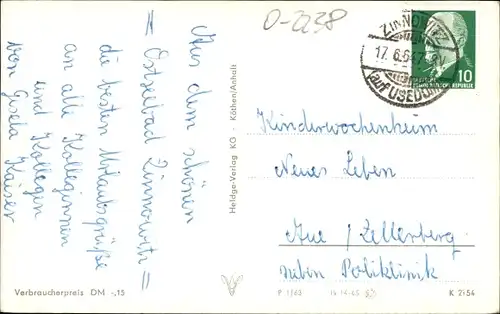 O-2238
Aus dem schönen
= Ostseebad Zinnowitz =
die besten Urlaubsgrüße
an alle Kolleginnen
und Kollegen
von Gisela Kaiser
Verbraucherpreis DM -,15
Heldge-Verlag KG - Köthen/Anhalt
ZINNOWITZ
17.6.64
auf USEDOM
10
DEUTSCHE
DEMOKRATISCHE REPUBLIK
Kinderwochenheim
Neues Leben
Aue / Zellerberg
neben Poliklinik
P 1/63
K 2154